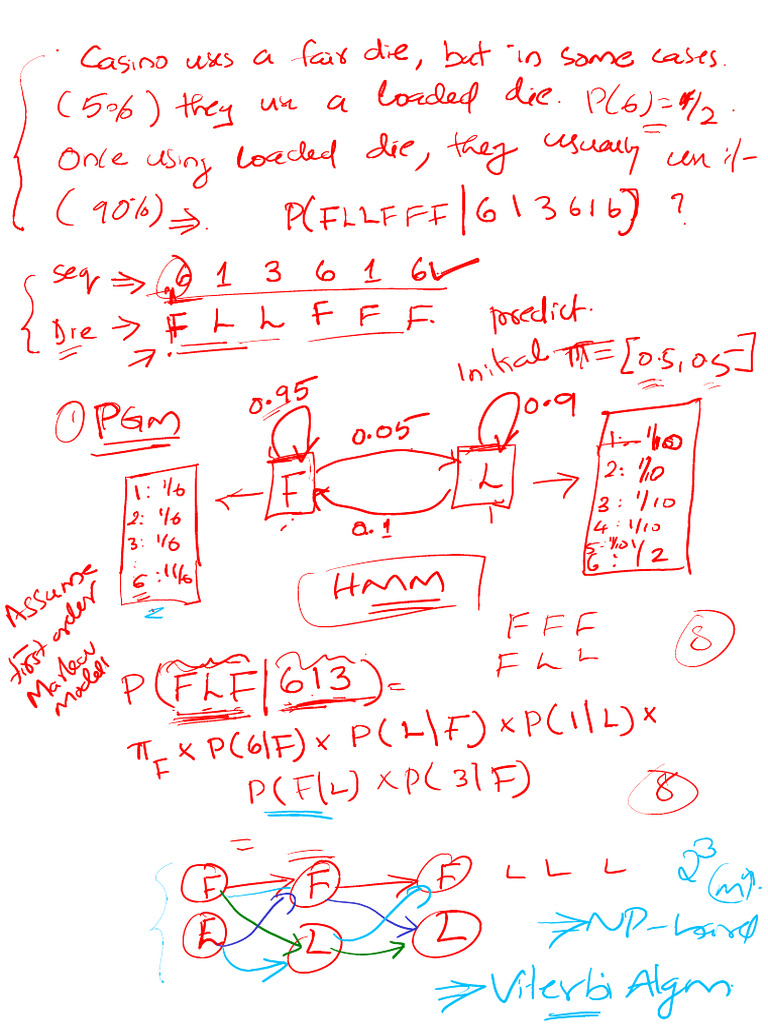 Casino uses a fair die, but in some cases.
(5%) they use a loaded die. P(6) = 1/2.
Once using loaded die, they usually use it
(90%) ⇒. P(FLLFFF | 613616) ?
Seq ⇒ 6 1 3 6 1 6 ✓
Die → F L L F F F.
predict.
initial π = [0.5, 0.5]
① PGM
0.95
0.05
0.9
F
L
0.1
1: 1/6
2: 1/6
3: 1/6
:
6: 1/6
1: 1/10
2: 1/10
3: 1/10
4: 1/10
5: 1/10
6: 1/2
HMM
Assume
first order
Markov
Model
F F F
F L L
8
P(FLF | 613) =
π_F × P(6|F) × P(L|F) × P(1|L) ×
P(F|L) × P(3|F)
8
=
F F F L L L 2³
L L L
⇒ NP-hard
⇒ Viterbi Algm